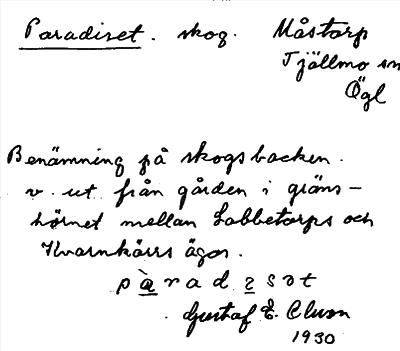 Paradiset. skog. Måstorp
Tjällmo sn
Ögl
Benämning på skogsbacken.
v. ut från gården i gräns-
hörnet mellan Labbetorps och
Kvarnkärrs ägor.
pàradesət
Gustaf E. Clwm
1930